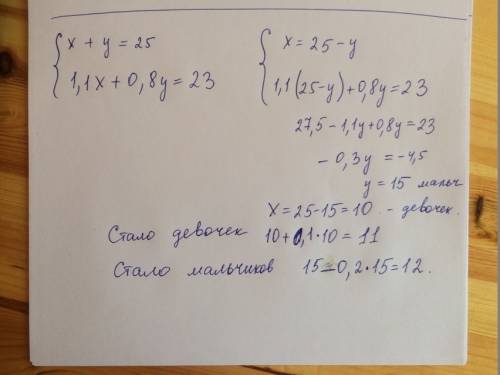 x + y = 25
1,1x + 0,8y = 23
x = 25 - y
1,1(25-y)+0,8y=23
27,5 - 1,1y+0,8y=23
- 0,3y = -4,5
y = 15 мальч
x = 25-15 = 10 - девочек.
Стало девочек 10+0,1·10 = 11
Стало мальчиков 15-0,2·15=12.